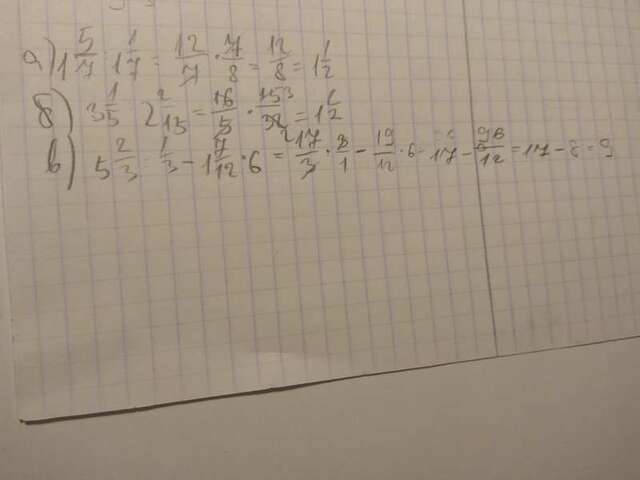 а) 1 5/7 : 1 1/7 = 12/7 · 7/8 = 12/8 = 1 1/2
б) 3 1/5 : 2 2/15 = 16/5 · 15/32 = 1 1/2
в) 5 2/3 : 1/3 - 1 7/12 · 6 = 17/3 · 3/1 - 19/12 · 6 = 17 - 96/12 = 17 - 8 = 9